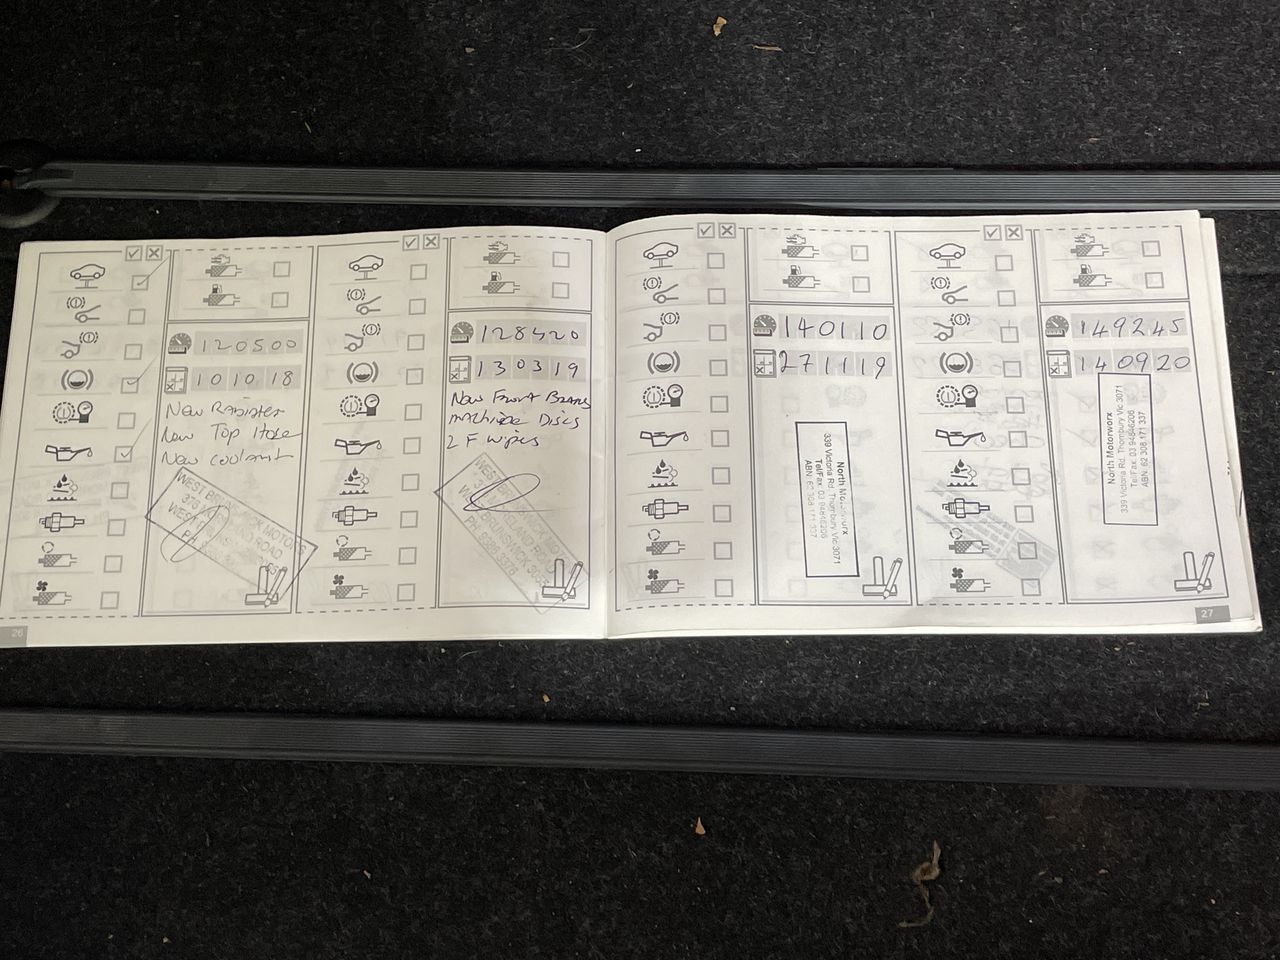 120500
101018
New Radiater
New Top Hose
New coolant
WEST BRUNSWICK MOTORS
26
128420
130319
New Front Brakes
machine Discs
2 F wipes
140110
271119
North Motorworx
339 Victoria Rd. Thornbury Vic 3071
Tel/Fax: 03 94846206
ABN: 62 308 171 337
149245
140920
North Motorworx
339 Victoria Rd. Thornbury Vic 3071
Tel/Fax: 03 94846206
ABN: 62 308 171 337
27